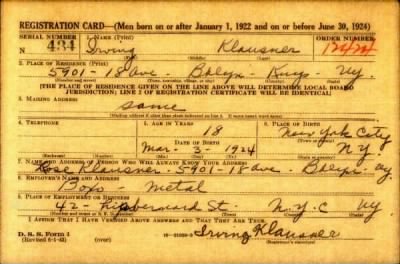 REGISTRATION CARD—(Men born on or after January 1, 1922 and on or before June 30, 1924)
SERIAL NUMBER 1. NAME (Print) ORDER NUMBER
434 Irving Klausner
(First) (Middle) (Last)
2. PLACE OF RESIDENCE
5901-18 ave Bklyn - Kings NY.
[THE PLACE OF RESIDENCE GIVEN ON THE LINE ABOVE WILL DETERMINE LOCAL BOARD
JURISDICTION; LINE 2 OF REGISTRATION CERTIFICATE WILL BE IDENTICAL]
3. MAILING ADDRESS
same
[Mailing address if other than place indicated on line 2. If same insert word same]
4. TELEPHONE 5. AGE IN YEARS 6. PLACE OF BIRTH
18 New York City
DATE OF BIRTH
Mar. - 3 - 1924 N.Y.
(Exchange) (Number) (Mo.) (Day) (Yr.) (State or country)
7. NAME AND ADDRESS OF PERSON WHO WILL ALWAYS KNOW YOUR ADDRESS
Klausner - 5901-18 ave. - Bklyn - NY
8. EMPLOYER'S NAME AND ADDRESS
Metal
9. PLACE OF EMPLOYMENT OR BUSINESS
42 - St. - N.Y.C NY
I AFFIRM THAT I HAVE VERIFIED ABOVE ANSWERS AND THAT THEY ARE TRUE.
D. S. S. Form 1 Irving Klausner
(Registrant's signature)